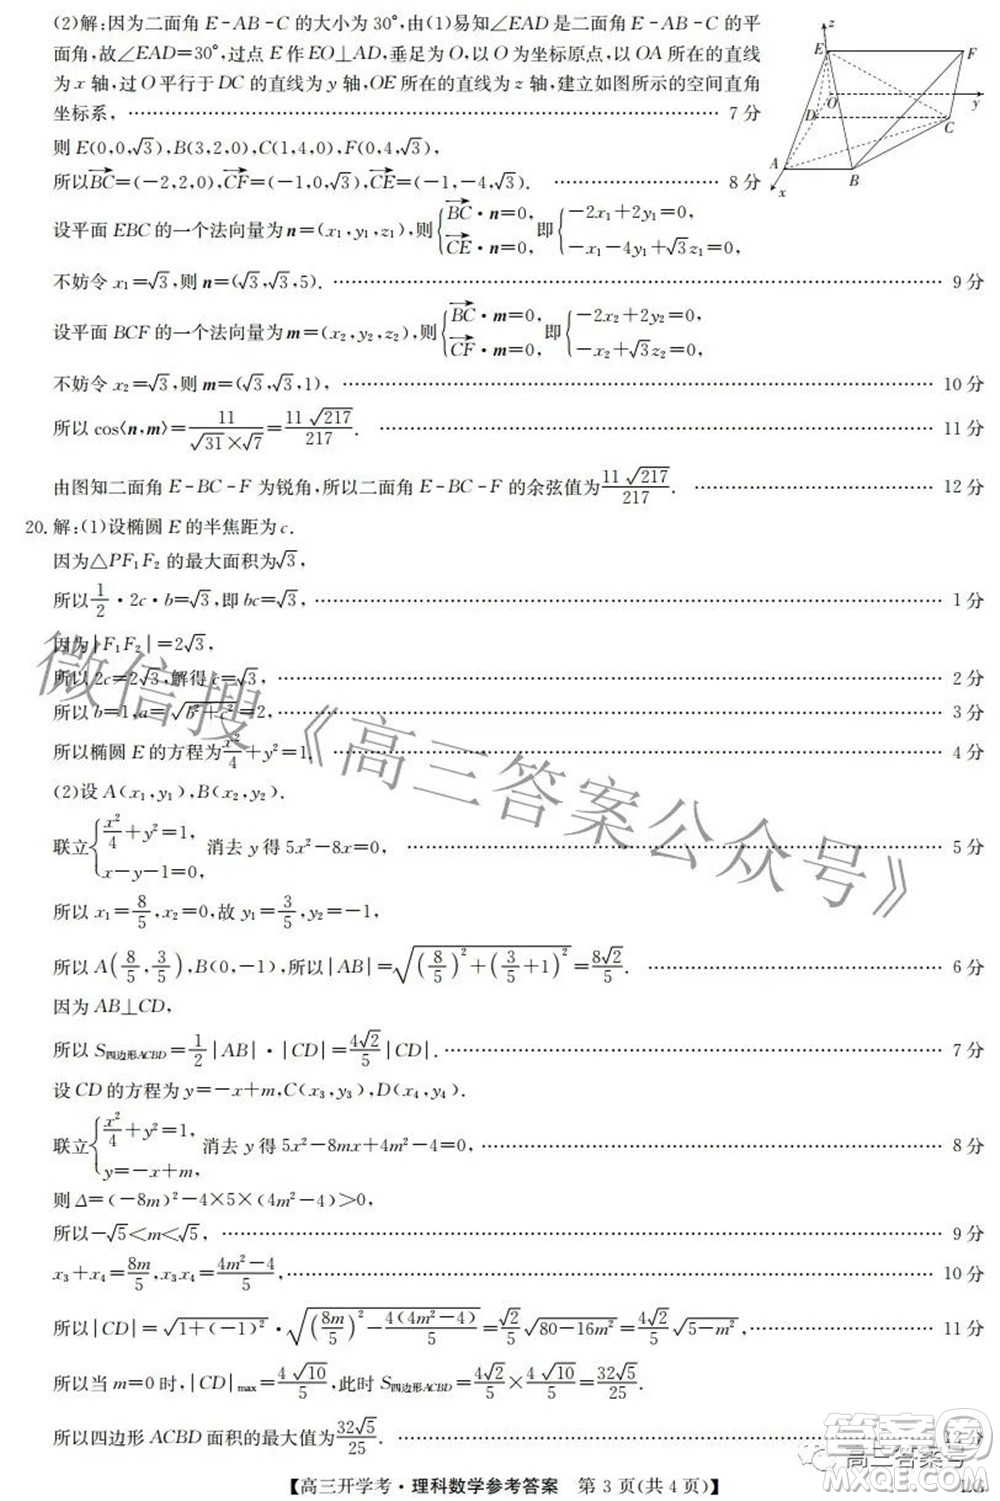 (2)解:因为二面角 E-AB-C 的大小为 30°,由(1)易知∠EAD 是二面角 E-AB-C 的平
面角,故∠EAD=30°,过点 E 作 EO⊥AD,垂足为 O,以 O 为坐标原点,以 OA 所在的直线
为 x 轴,过 O 平行于 DC 的直线为 y 轴,OE 所在的直线为 z 轴,建立如图所示的空间直角
坐标系, …… 7 分
z
E
F
O
y
D
C
A
B
x
则 E(0,0,√3),B(3,2,0),C(1,4,0),F(0,4,√3),
所以BC→=(-2,2,0),CF→=(-1,0,√3),CE→=(-1,-4,√3). …… 8 分
设平面 EBC 的一个法向量为 n=(x₁,y₁,z₁),则{BC→·n=0, CE→·n=0, 即{-2x₁+2y₁=0, -x₁-4y₁+√3z₁=0,
不妨令 x₁=√3,则 n=(√3,√3,5). …… 9 分
设平面 BCF 的一个法向量为 m=(x₂,y₂,z₂),则{BC→·m=0, CF→·m=0, 即{-2x₂+2y₂=0, -x₂+√3z₂=0,
不妨令 x₂=√3,则 m=(√3,√3,1), …… 10 分
所以 cos⟨n,m⟩=11/(√31×√7)=11√217/217. …… 11 分
由图知二面角 E-BC-F 为锐角,所以二面角 E-BC-F 的余弦值为11√217/217. …… 12 分
20. 解:(1)设椭圆 E 的半焦距为 c.
因为△PF₁F₂ 的最大面积为√3,
所以1/2·2c·b=√3,即 bc=√3, …… 1 分
因为|F₁F₂|=2√3,
所以 2c=2√3,解得 c=√3, …… 2 分
所以 b=1,a=√(b²+c²)=2, …… 3 分
所以椭圆 E 的方程为x²/4+y²=1. …… 4 分
(2)设 A(x₁,y₁),B(x₂,y₂).
联立{x²/4+y²=1, x-y-1=0, 消去 y 得 5x²-8x=0, …… 5 分
所以 x₁=8/5,x₂=0,故 y₁=3/5,y₂=-1,
所以 A(8/5,3/5),B(0,-1),所以|AB|=√((8/5)²+(3/5+1)²)=8√2/5. …… 6 分
因为 AB⊥CD,
所以 S四边形ACBD=1/2|AB|·|CD|=4√2/5|CD|. …… 7 分
设 CD 的方程为 y=-x+m,C(x₃,y₃),D(x₄,y₄).
联立{x²/4+y²=1, y=-x+m, 消去 y 得 5x²-8mx+4m²-4=0, …… 8 分
则 Δ=(-8m)²-4×5×(4m²-4)>0,
所以-√5<m<√5, …… 9 分
x₃+x₄=8m/5,x₃x₄=(4m²-4)/5, …… 10 分
所以|CD|=√(1+(-1)²)·√((8m/5)²-4(4m²-4)/5)=√2/5√(80-16m²)=4√2/5√(5-m²), …… 11 分
所以当 m=0 时,|CD|max=4√10/5,此时 S四边形ACBD=4√2/5×4√10/5=32√5/25.
所以四边形 ACBD 面积的最大值为32√5/25. …… 12 分
【高三开学考·理科数学参考答案 第 3 页(共 4 页)】
微信搜《高三答案公众号》
答案圈
高三答案号